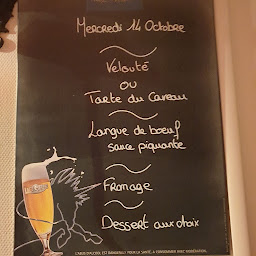 Mercredi 14 Octobre
Velouté
ou
Tarte du Caveau
Langue de boeuf
sauce piquante
Fromage
Dessert aux choix
L'ABUS D'ALCOOL EST DANGEREUX POUR LA SANTÉ, À CONSOMMER AVEC MODÉRATION.